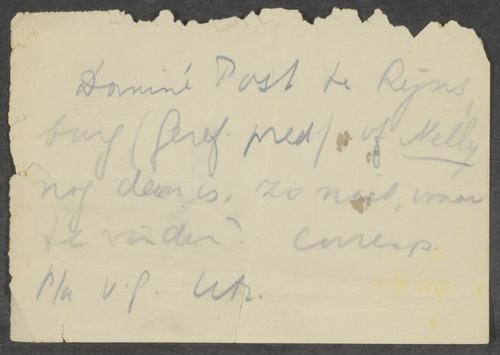 Dominé Post te Rijns
burg (Geref. pred) of Nelly
nog daar is, zo niet, waar
te vinden? Corresp.
p/a v.g. Utr.